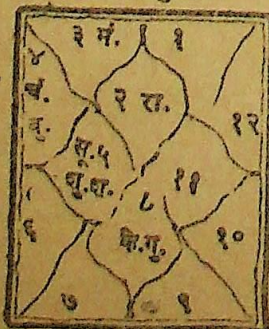 ३ मं.
१
४
बं.
बृ.
२ रा.
१२
सू. ५
शु. श.
११
८
के. गु.
६
१०
७
९